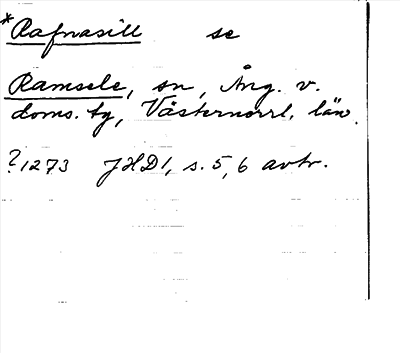 *Rafnasill se
Ramsele, sn, Ång. v.
doms. tg, Västernorrl. län.
?1273 JHD1, s. 5, 6 avtr.